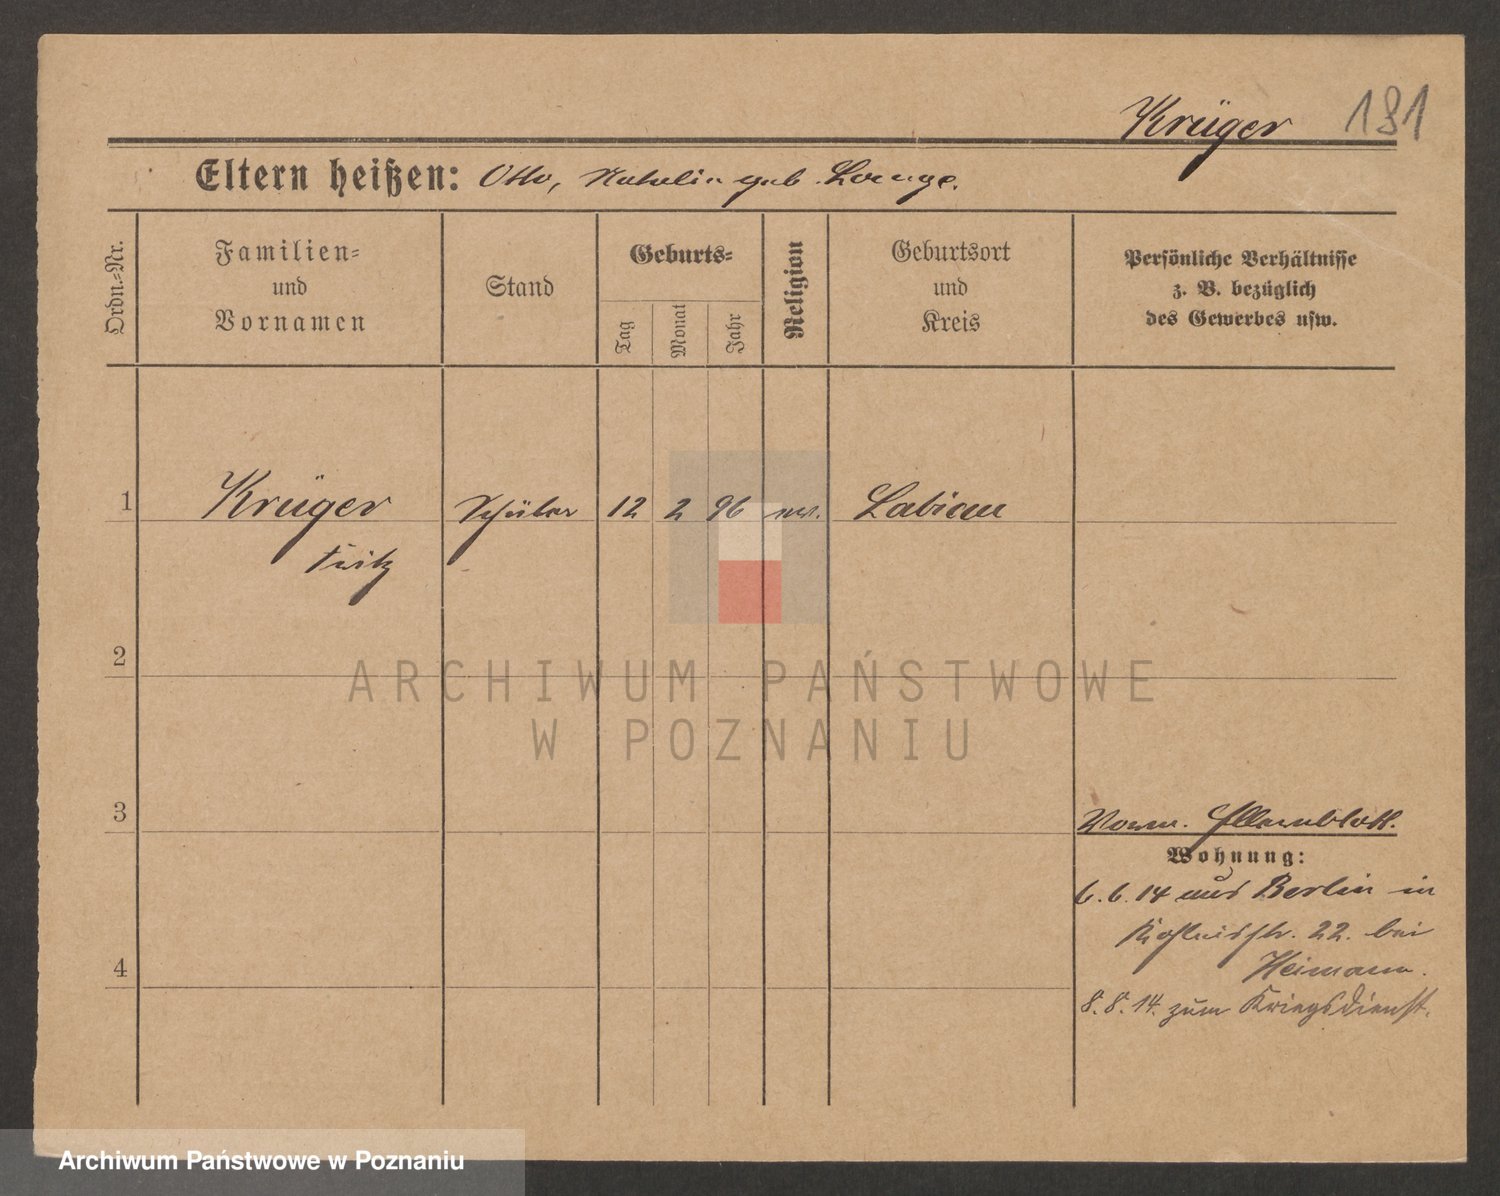 Krüger 181
Eltern heißen: Otto, Natalie geb. Lange.
Ordn.-Nr.
Familien-
und
Vornamen
Stand
Geburts-
Tag
Monat
Jahr
Religion
Geburtsort
und
Kreis
Persönliche Verhältnisse
z. B. bezüglich
des Gewerbes usw.
1 Krüger Schüler 12 2 96 ev. Labiau
Fritz
2
ARCHIWUM PAŃSTWOWE
W POZNANIU
3
Wohnung:
6.6.14 aus Berlin in
22. bei
4
Heimann.
8.8.14. zum Kriegsdienst.
Archiwum Państwowe w Poznaniu